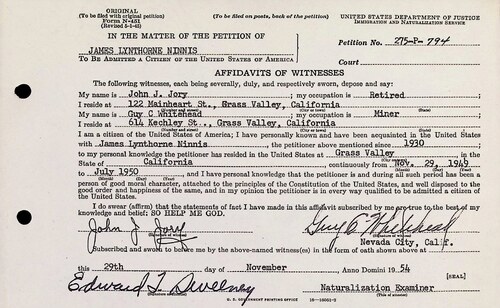 ORIGINAL
(To be filed with original petition)
(To be filed on posts, back of this petition)
UNITED STATES DEPARTMENT OF JUSTICE
Form N-451
IMMIGRATION AND NATURALIZATION SERVICE
IN THE MATTER OF THE PETITION OF
Petition No. 275-P-794
JAMES LYNTHORNE NINNIS
Court
TO BE ADMITTED A CITIZEN OF THE UNITED STATES OF AMERICA
AFFIDAVITS OF WITNESSES
The following witnesses, each being severally, duly, and respectively sworn, depose and say:
My name is John J. Jory ; my occupation is Retired
I reside at 122 Mainheart St., Grass Valley, California
My name is Guy C Whitehead ; my occupation is Miner
I reside at 614 Kechley St., Grass Valley, California
I am a citizen of the United States of America; I have personally known and have been acquainted in the United States
with James Lynthorne Ninnis , the petitioner above mentioned since 1930
to my personal knowledge the petitioner has resided in the United States at Grass Valley
State of California continuously from Nov. 29, 1949
to July 1950 , and I have personal knowledge that the petitioner is and during all such period has been a
person of good moral character, attached to the principles of the Constitution of the United States, and well disposed to the
good order and happiness of the same, and in my opinion the petitioner is in every way qualified to be admitted a citizen of
the United States.
I do swear (affirm) that the statements of fact I have made in this affidavit subscribed by me are true to the best of my
knowledge and belief: SO HELP ME GOD.
John J Jory
Guy C Whitehead
Nevada City, Calif.
Subscribed and sworn to before me by the above-named witness(es) in the form of oath shown above at
this 29th day of November Anno Domini 1954
[SEAL]
Edward T Sweeney
Naturalization Examiner